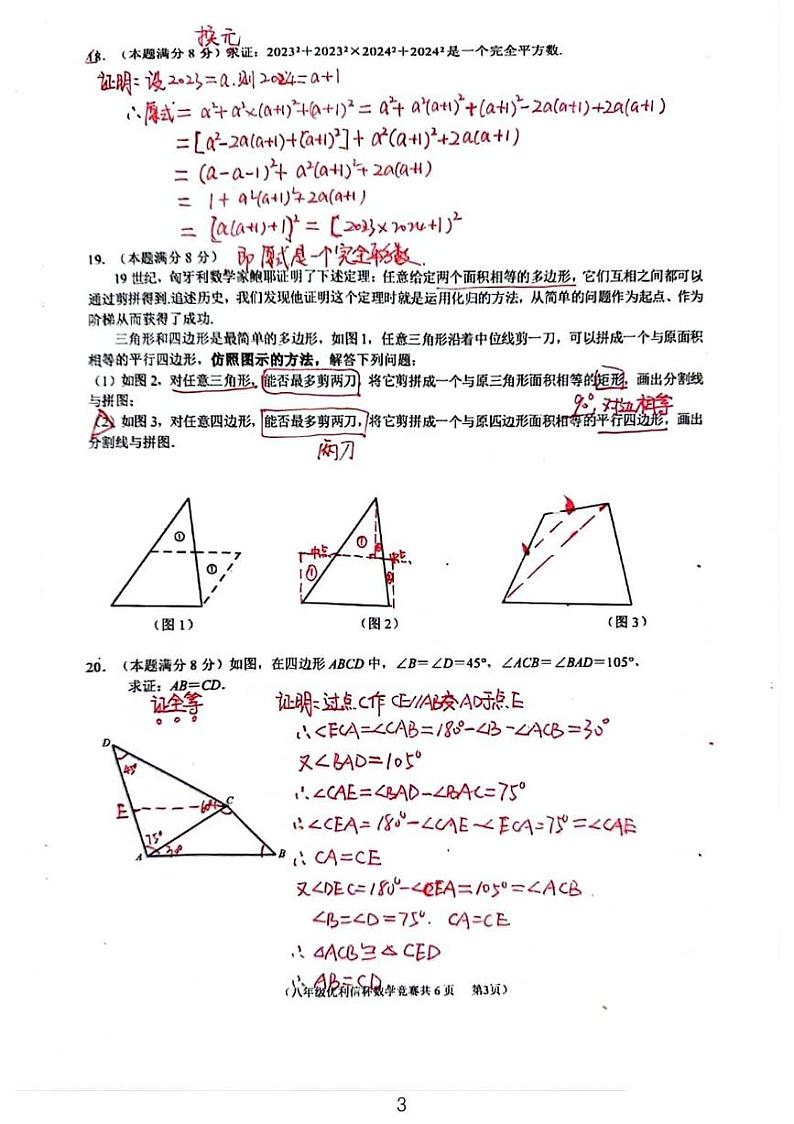 换元
18. （本题满分 8 分）求证：2023²＋2023²×2024²＋2024²是一个完全平方数.
证明：设2023=a.则2024=a+1
∴原式= a²+a²×(a+1)²+(a+1)² = a²+a²(a+1)²+(a+1)²-2a(a+1)+2a(a+1)
=[a²-2a(a+1)+(a+1)²]+a²(a+1)²+2a(a+1)
= (a-a-1)²+a²(a+1)²+2a(a+1)
= 1+a²(a+1)²+2a(a+1)
= [a(a+1)+1]² = [2023×2024+1]²
即原式是一个完全平方数.
19. （本题满分 8 分）
19 世纪，匈牙利数学家鲍耶证明了下述定理：任意给定两个面积相等的多边形，它们互相之间都可以
通过剪拼得到.追述历史，我们发现他证明这个定理时就是运用化归的方法，从简单的问题作为起点、作为
阶梯从而获得了成功.
三角形和四边形是最简单的多边形，如图 1，任意三角形沿着中位线剪一刀，可以拼成一个与原面积
相等的平行四边形，仿照图示的方法，解答下列问题：
（1）如图 2，对任意三角形，能否最多剪两刀，将它剪拼成一个与原三角形面积相等的矩形，画出分割线
与拼图；
90°，对边相等
（2）如图 3，对任意四边形，能否最多剪两刀，将它剪拼成一个与原四边形面积相等的平行四边形，画出
分割线与拼图.
两刀
① ①
① ① 中点 中点
（图 1） （图 2） （图 3）
20. （本题满分 8 分）如图，在四边形 ABCD 中，∠B＝∠D＝45°，∠ACB＝∠BAD＝105°，
求证：AB＝CD.
证全等
证明：过点C作CE//AB交AD于点E
∴∠ECA=∠CAB=180°-∠B-∠ACB=30°
又∠BAD=105°
∴∠CAE=∠BAD-∠BAC=75°
∴∠CEA=180°-∠CAE-∠ECA=75°=∠CAE
∴CA=CE
又∠DEC=180°-∠CEA=105°=∠ACB.
∠B=∠D=75°. CA=CE
∴△ACB≌△CED
∴AB=CD
D 45°
E C
75° A B
（八年级优利信杯数学竞赛共 6 页 第3页）
3